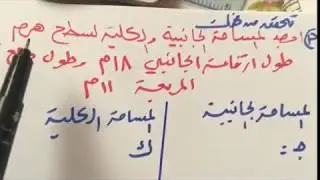 تحقق من فهمك
اوجد المساحة الجانبية والكلية لسطح هرم
طول ارتفاعه الجانبي ١٨م وطول
المربعة ١١م
المساحة الجانبية
المساحة الكلية
جـ =
ك